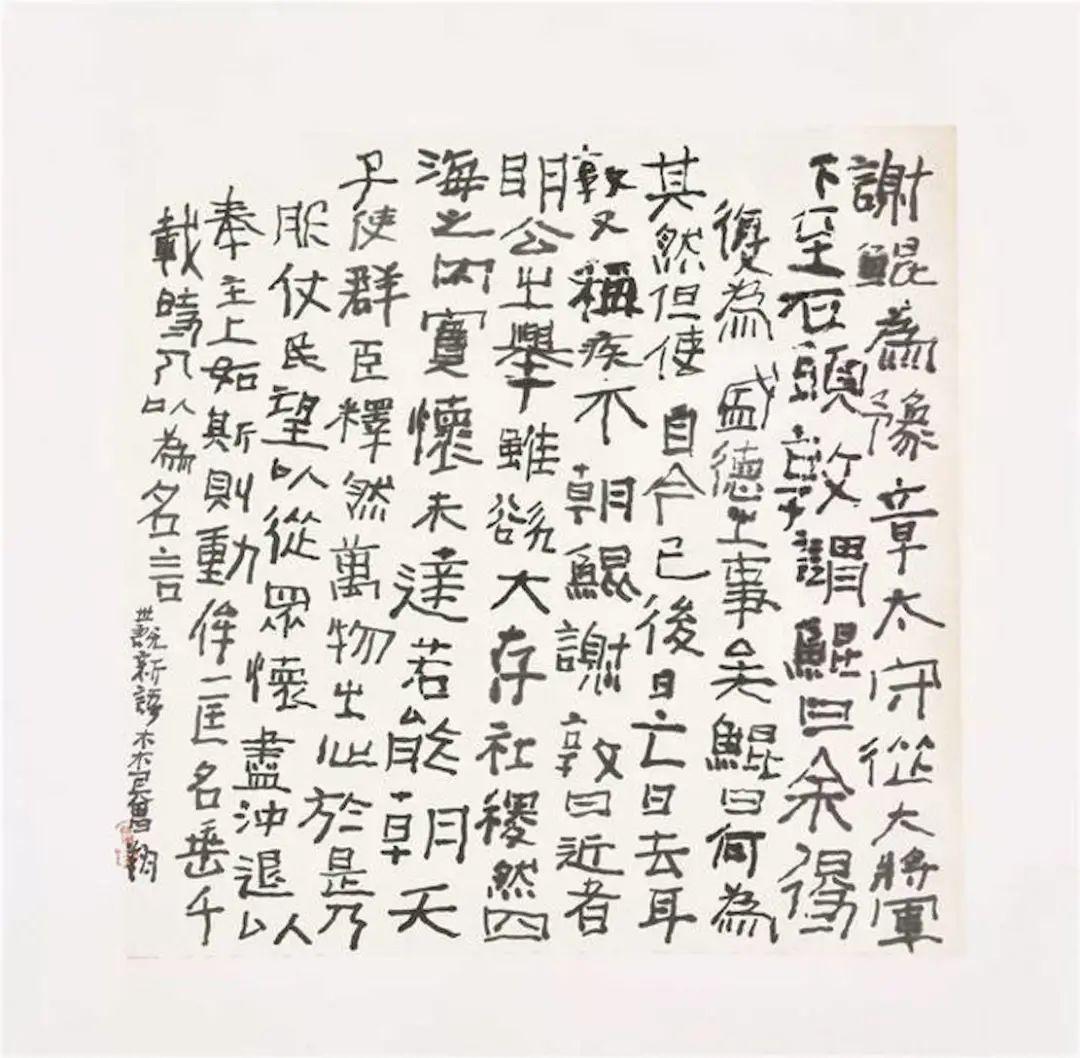 謝鯤為豫章太守從大將軍
下至石頭敦謂鯤曰余得
復為盛德之事矣鯤曰何為
其然但使自今已後日亡日去耳
敦又稱疾不朝鯤謝敦曰近者
明公之舉雖欲大存社稷然四
海之內實懷未達若能朝天
子使群臣釋然萬物之心於是乃
服仗民望以從眾懷盡沖退以
奉主上如斯則動侔一匡名垂千
載時人以為名言
世說新語 曾翔